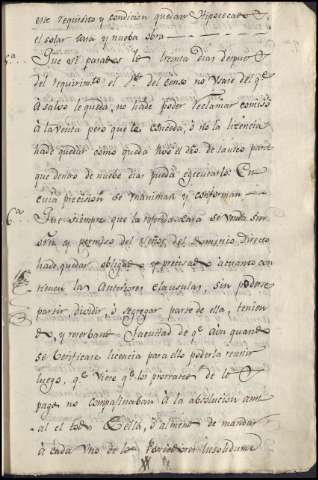 este requisito y condicion quedar Hipotecado
el solar casa y nueba obra
5.ª Que si pasados los treinta dias despues
del requirimto el Sr. del censo no usare del q.e
à salvo le queda, no hade poder reclamar comiso
à la venta pero que le conceda, ò no la licencia
hade quedar como queda àsu el dro. de tanteo para
que dentro de nuebe dias pueda ejecutarlo: En
cuia precision se manimàn y conforman
6.ª Que siempre que la referida casa se venda sin
orñ y permiso del Señor del Dominio directo
hade quedar obligada y precisada àquanto con
tienen las Anteriores clausulas, sin poderse
partir dividir, ò segregar parte de ella, tenien
do, y reserbando facultad de q.e aun quando
se berificase licencia para ello poderla reunir
luego, q.e viere q.e los prorrateos de
pago no compensaban à la absolucion anu
al el todo de ella, ò almenos de mandar
à cada uno de los Poseedores Insolidum